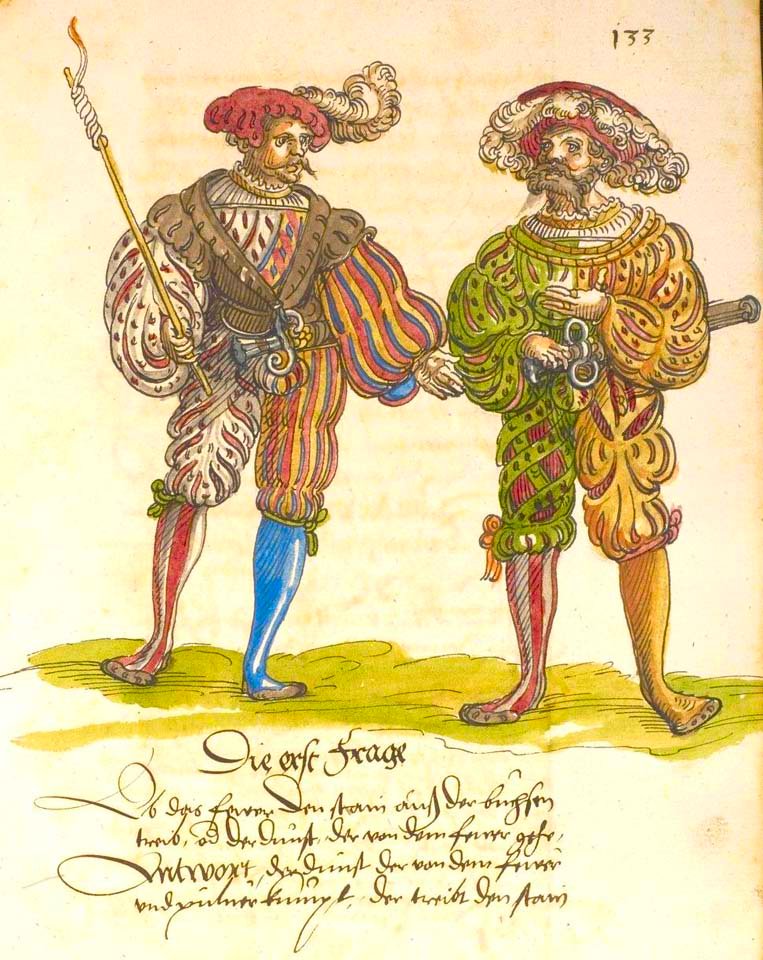 133
Die erst Frage
Ob das fewer den stain auß der büchsen
treib, od der dunst, der von dem fewer gehe,
Antwort, der dunst der von dem fewer
vnd puluer kumpt, der treibt den stain